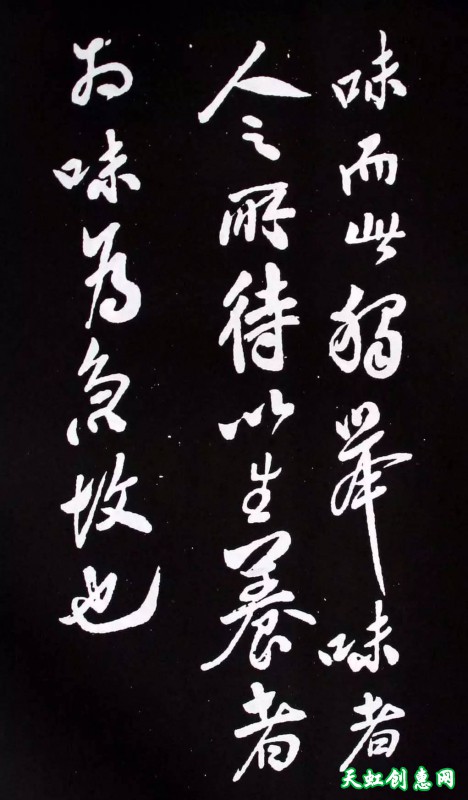 味而此獨舉味者
人之所待以生養者
於味為急故也
天虹创惠网